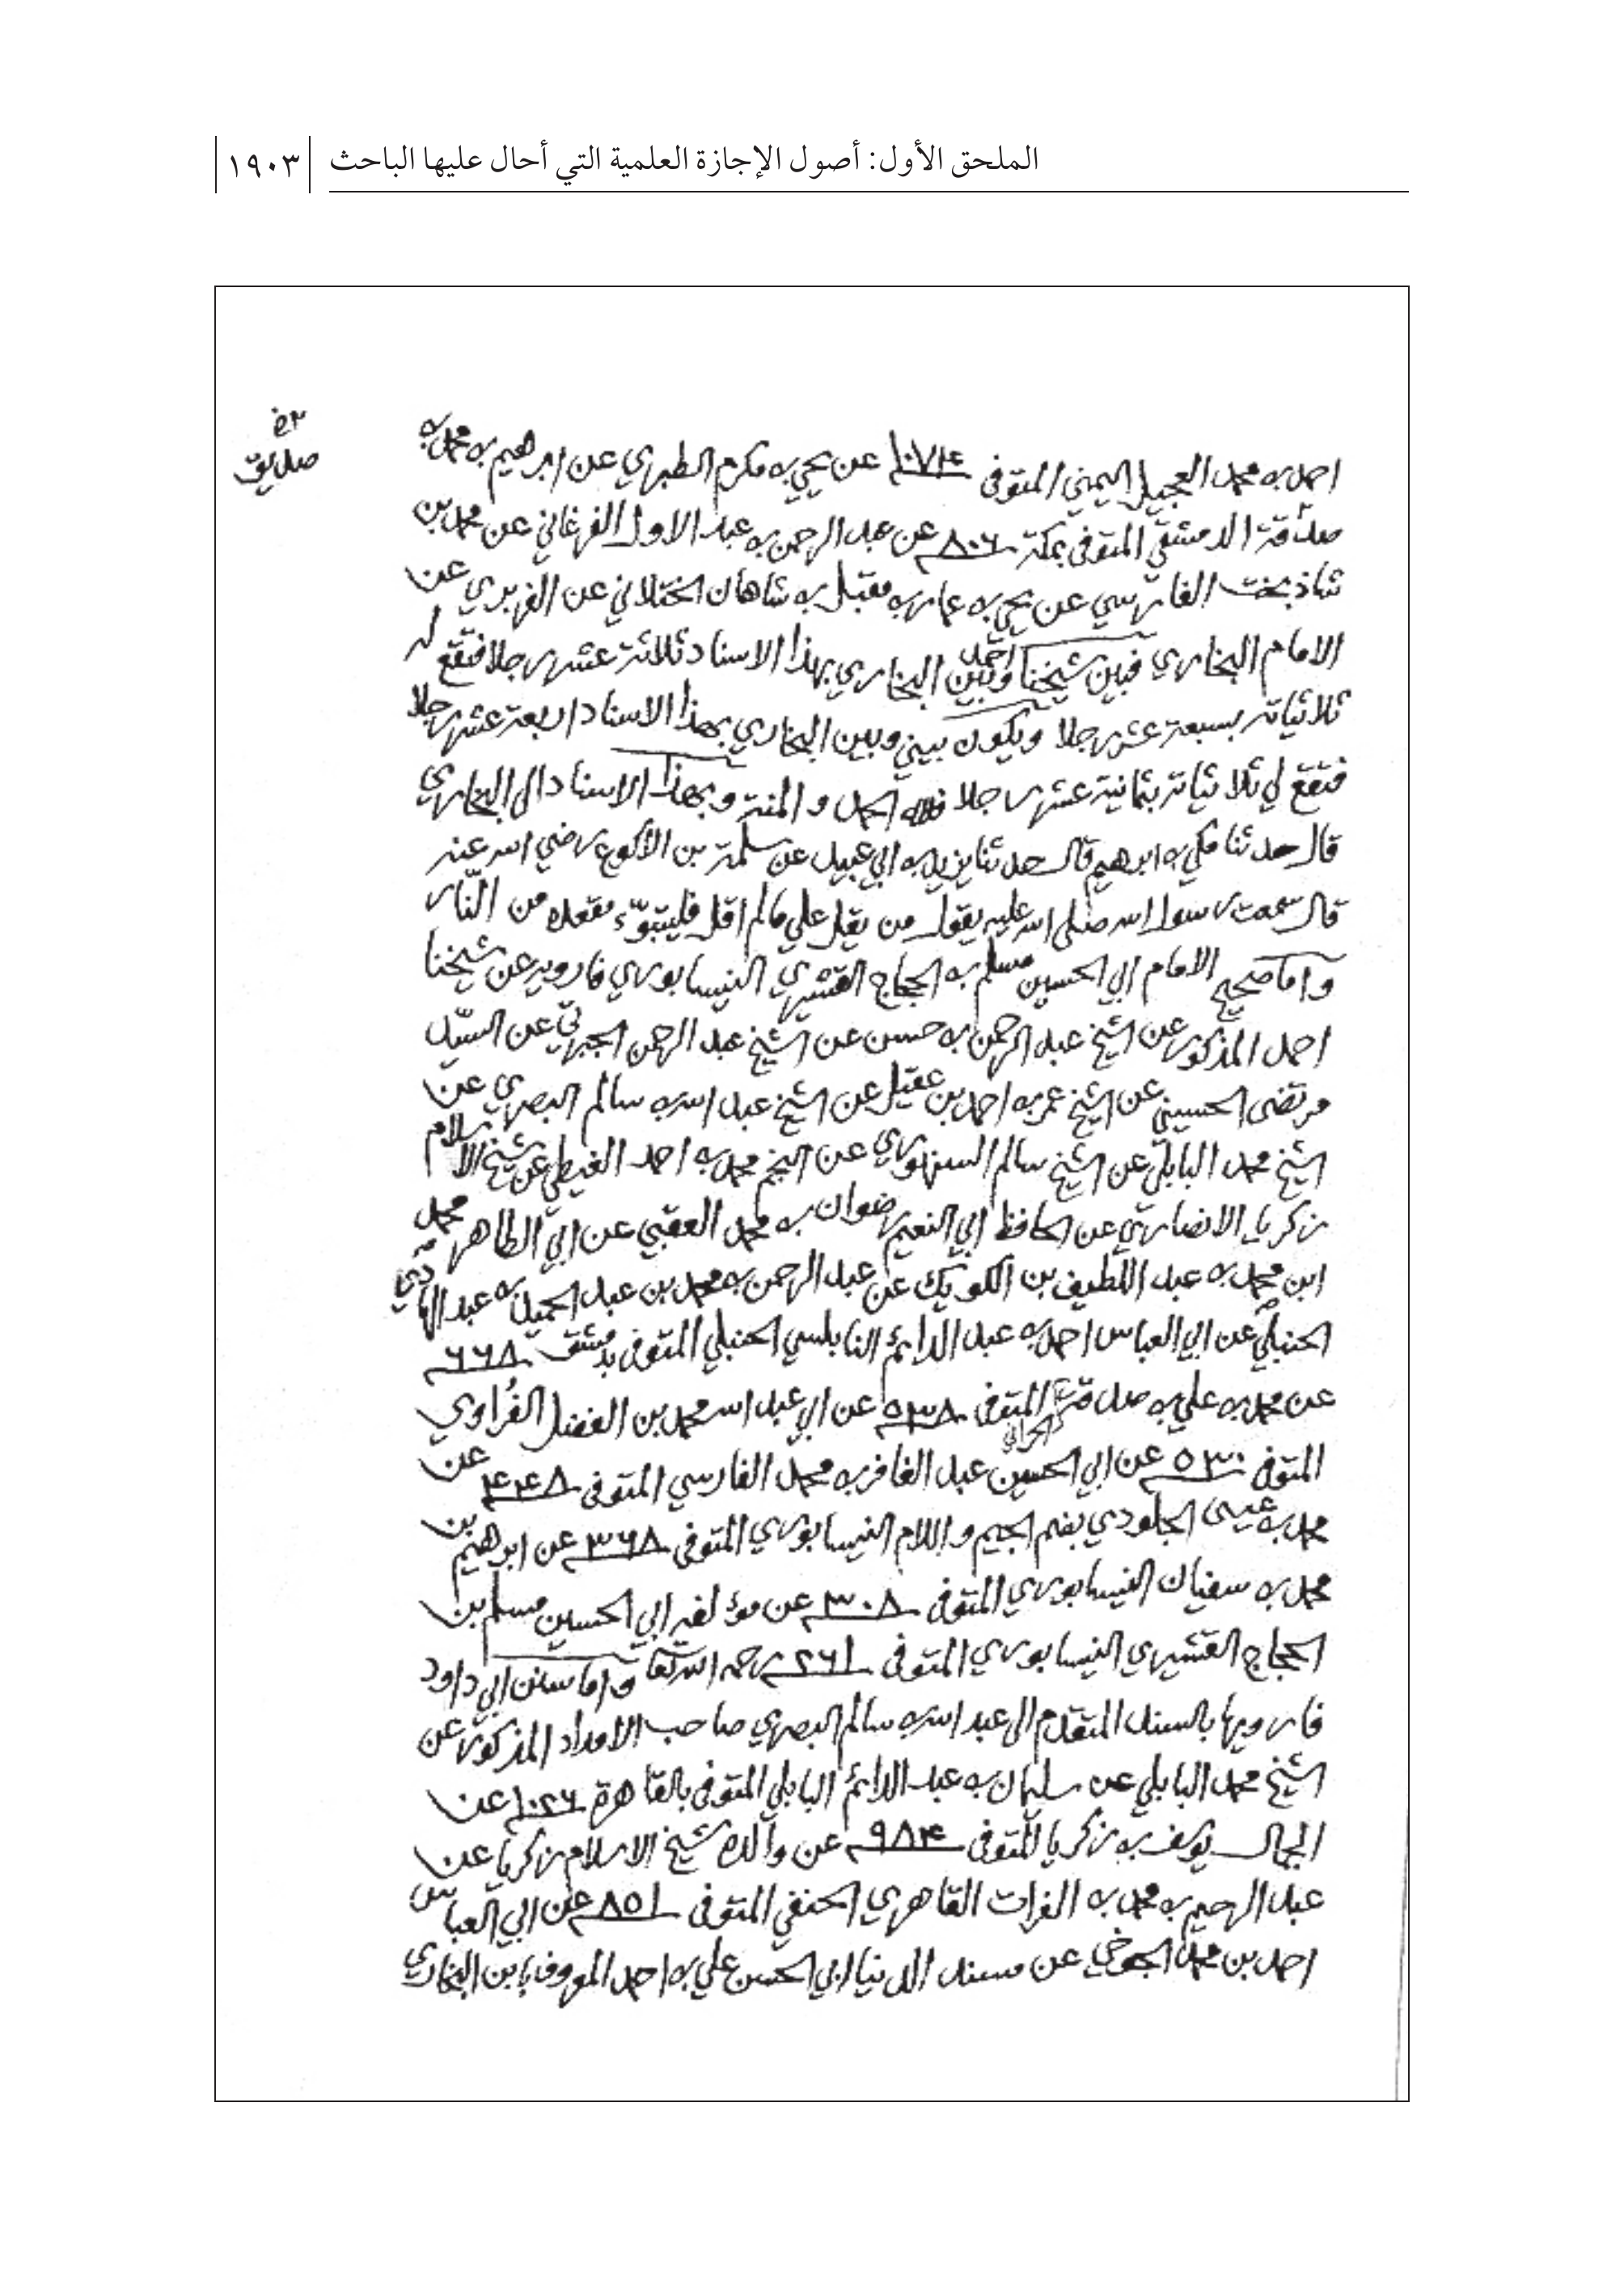 الملحق الأول: أصول الإجازة العلمية التي أحال عليها الباحث ١٩٠٣
احمد به محمد العجيل اليمني المتوفى ١٠٧٤ عن يحيى به مكرم الطبري عن ابرهيم به محمد به
صدقة الدمشقي المتوفى بمكة ٨٠٦ عن عبد الرحمن به عبد الاول الفرغاني عن محمد بن
شاذ بخت الفارسي عن يحيى به عمار به مقبل به شاهان الختلاني عن الفربري عن
الامام البخاري فبين شيخنا احمد وبين البخاري بهذا الاسناد ثلاثة عشر رجلا فتقع له
ثلاثياته بسبعة عشر رجلا ويكون بيني وبين البخاري بهذا الاسناد اربعة عشر رجلا
فتقع لي ثلاثياته بثمانية عشر رجلا فلله الحمد والمنة وبهذا الاسناد الى البخاري
قال حدثنا مكي به ابرهيم قال حدثنا يزيد به ابي عبيد عن سلمة بن الأكوع رضي الله عنه
قال سمعت رسول الله صلى الله عليه يقول من يقل علي مالم اقل فليتبوّء مقعده من النّار
واما صحيح الامام ابي الحسين مسلم به الحجاج القشيري النيسابوري فارويه عن شيخنا
احمد المذكور عن الشيخ عبد الرحمن به حسن عن الشيخ عبد الرحمن الجبرتي عن السيّد
مرتضى الحسيني عن الشيخ عمر به احمد بن عقيل عن الشيخ عبد الله به سالم البصري عن
الشيخ محمد البابلي عن الشيخ سالم السنهوري عن النجم محمد به احمد الغيطي عن شيخ الاسلام
زكريا الانصاري عن الحافظ ابي النعيم رضوان به محمد العقبي عن ابي الطاهر محمد
ابن محمد به عبد اللطيف بن الكويك عن عبد الرحمن به محمد بن عبد الحميد به عبد الهادي
الحنبلي عن ابي العباس احمد به عبد الدائم النابلسي الحنبلي المتوفى بدمشق ٦٦٨
عن محمد به علي به صدقة الحراني المتوفى ٥٣٨ عن ابي عبد الله محمد بن الفضل الفُراوي
المتوفى ٥٣٠ عن ابي الحسين عبد الغافر به محمد الفارسي المتوفى ٤٤٨ عن
محمد به عيسى الجلودي بضم الجيم واللام النيسابوري المتوفى ٣٦٨ عن ابرهيم بن
محمد به سفيان النيسابوري المتوفى ٣٠٨ عن مؤلفه ابي الحسين مسلم بن
الحجاج القشيري النيسابوري المتوفى ٢٦١ رحمه الله تعا واما سنن ابي داود
فارويها بالسند المتقدم الى عبد الله به سالم البصري صاحب الامداد المذكور عن
الشيخ محمد البابلي عن سليمان به عبد الدائم البابلي المتوفى بالقاهرة ١٠٢٦ عن
الجمال يوسف به زكريا المتوفى ٩٨٤ عن والده شيخ الاسلام زكريا عن
عبد الرحيم به محمد به الفرات القاهري الحنفي المتوفى ٨٥١ عن ابي العباس
احمد بن محمد الجوخي عن مسند الدنيا ابي الحسن علي به احمد المعروف بابن البخاري